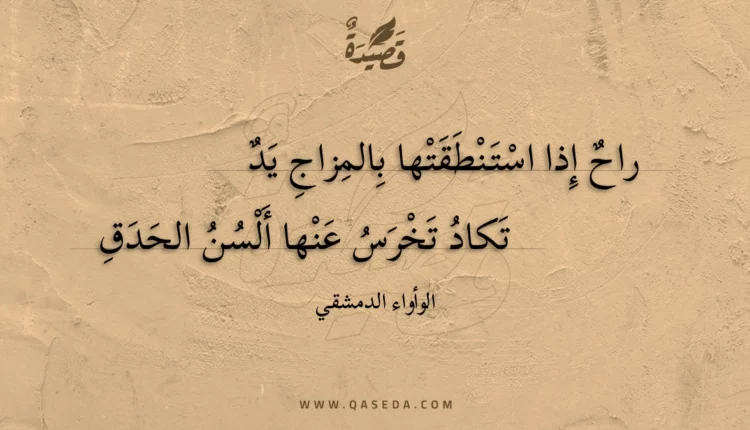 قَصِيدَةٌ
راحٌ إِذا اسْتَنْطَقَتْها بِالمِزاجِ يَدٌ
تَكادُ تَخْرَسُ عَنْها أَلْسُنُ الحَدَقِ
الوأواء الدمشقي
WWW.QASEDA.COM